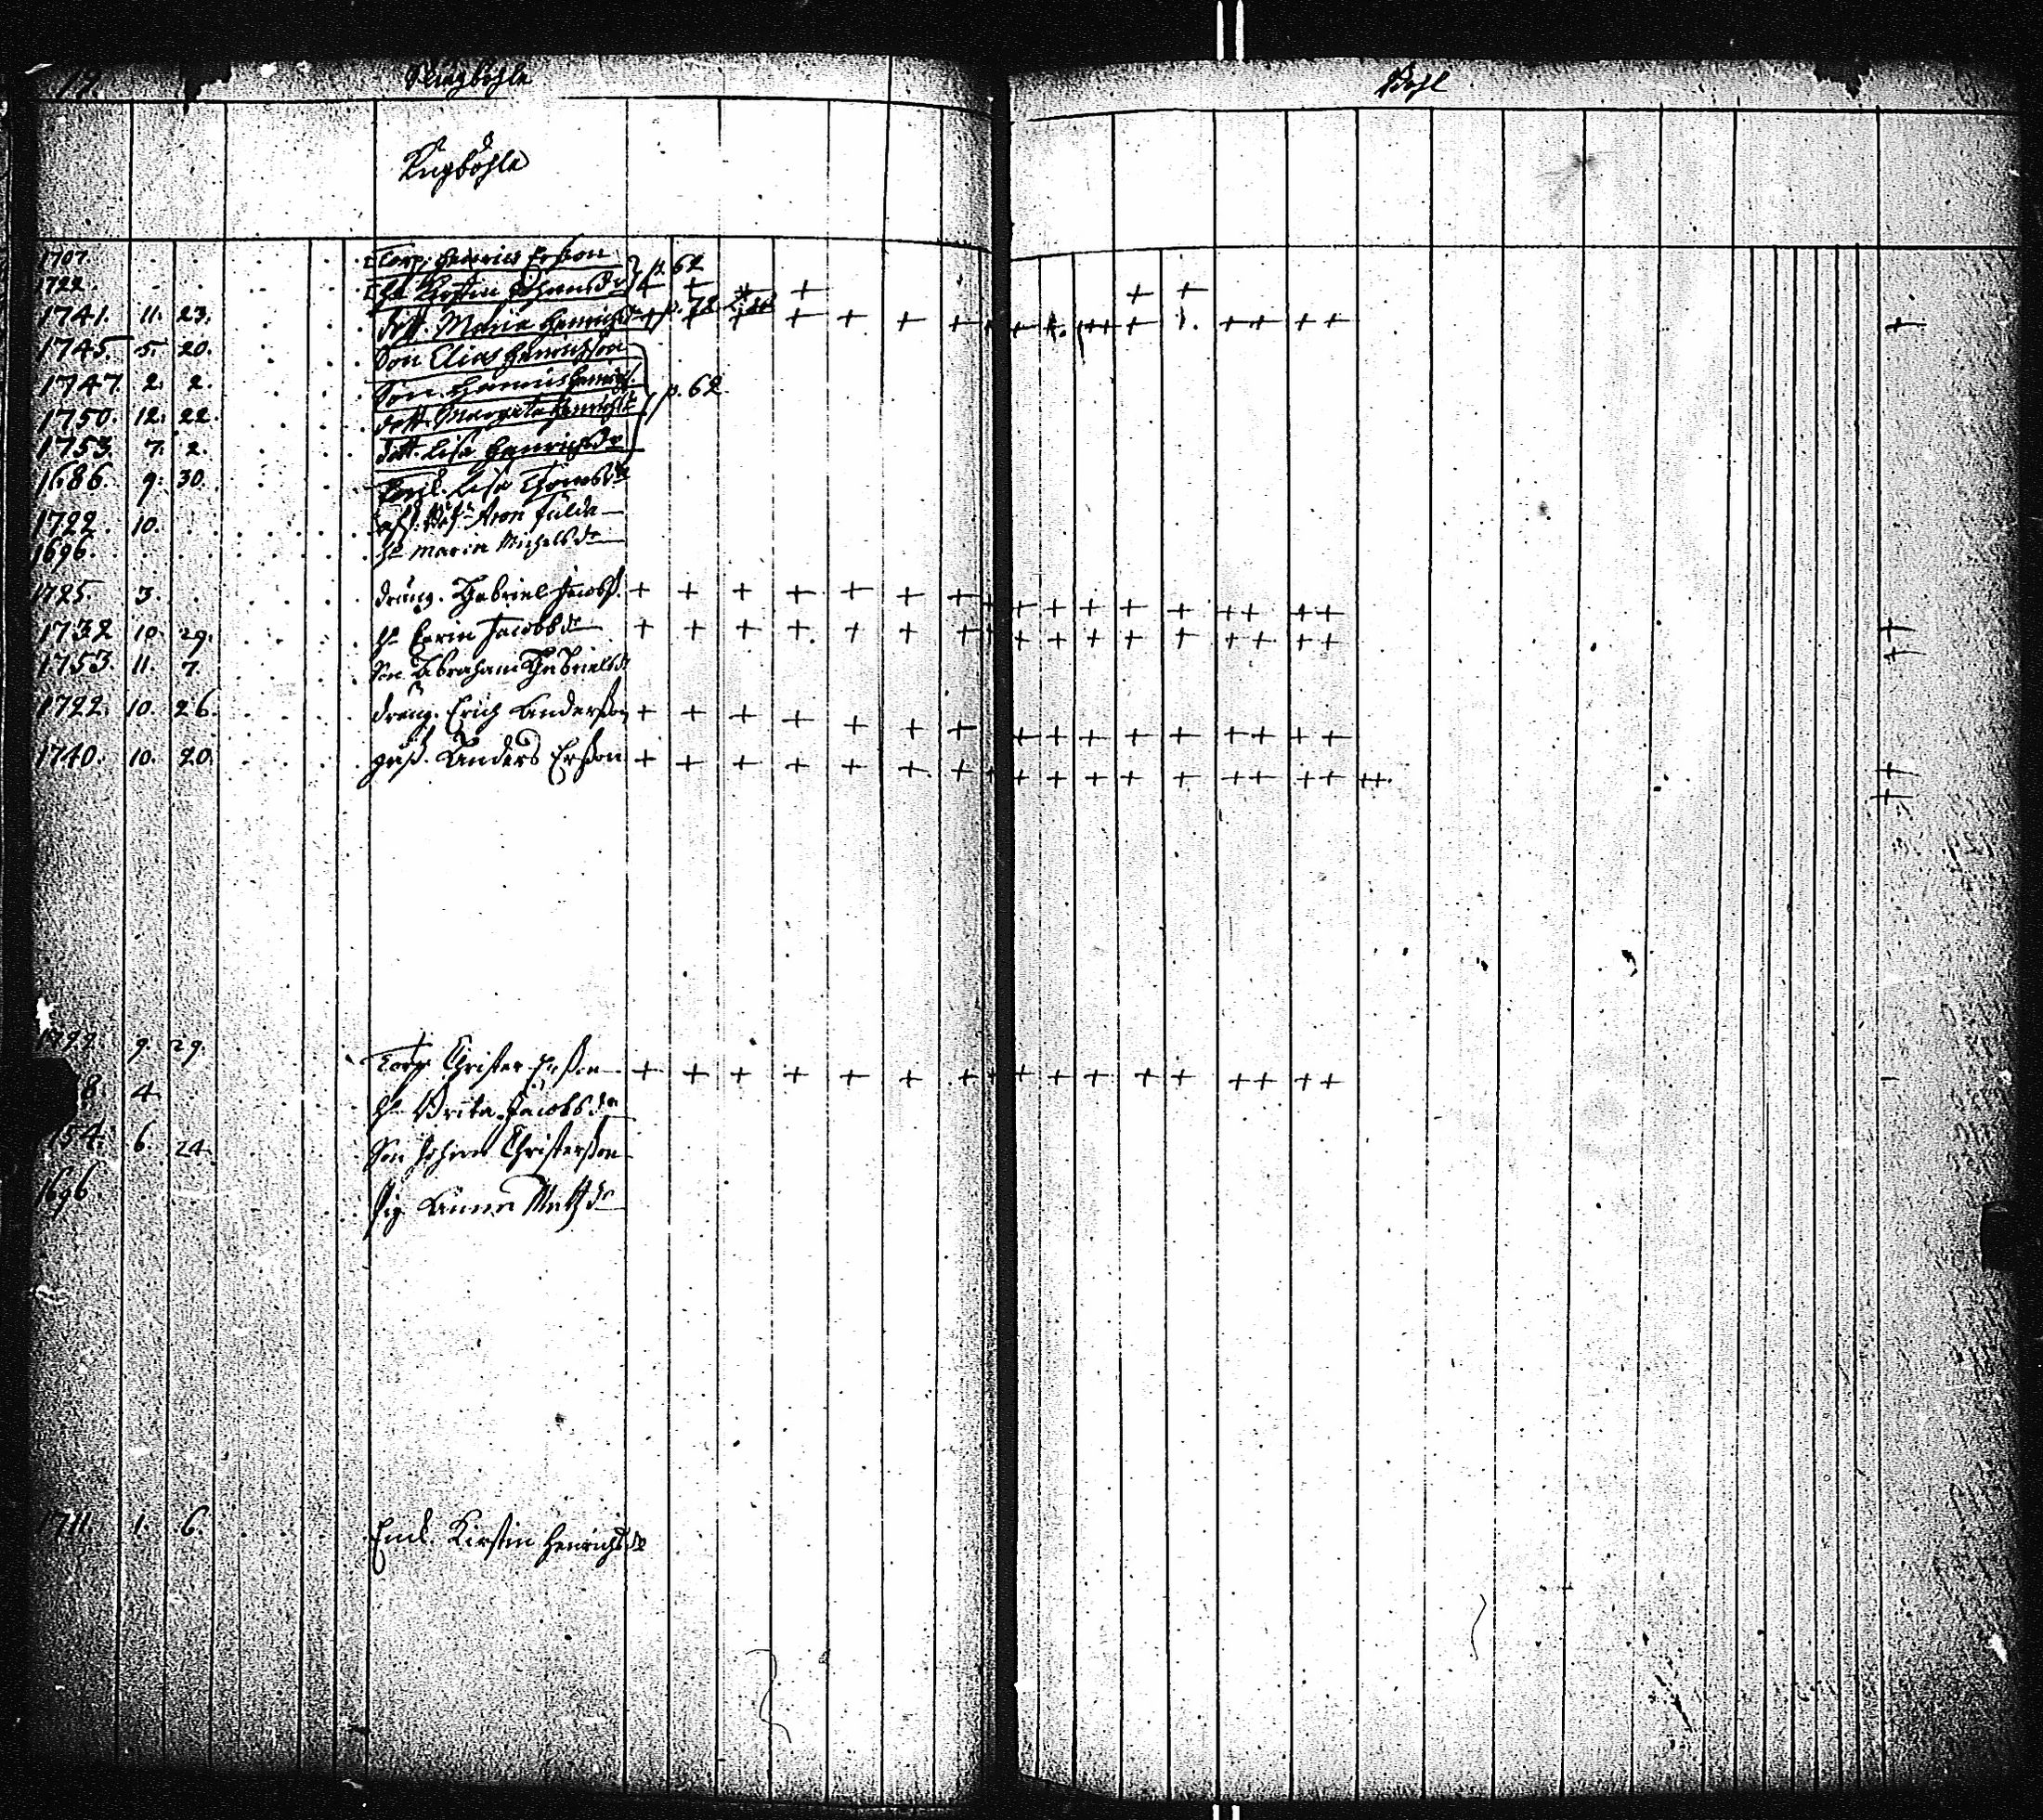 17.
Ringböhle
Bohl
Ringböhle
1707. Torp. Henrich Ersson p. 62
1722. h. Kirstin Johansdr + + + + + +
1741. 11. 23. dott. Maria Henrichsdr p. 72 + + + + + + + + + + + + +
1745. 5. 20. Son Elias Henrichsson
1747. 2. 2. Son. Henrich p. 62
1750. 12. 22. dott. Margeta Henrichsdr
1753. 7. 2. dott. Lisa Henrichsdr
1686. 9. 30. Lisa Thomsdr
1722. 10. Aron Fulda
1696. h. Maria Michelsdr
1725. 3. dräng. Gabriel Jacobss. + + + + + + + + + + + + ++ ++
1732 10. 29. h. Carin Jacobsdr + + + + + + + + + + + + ++ ++ +
1753. 11. 7. Son Abraham Gabrielss +
1722. 10. 26. dräng. Erich Andersson + + + + + + + + + + + + ++ ++
1740. 10. 20. Anders Ersson + + + + + + + + + + + + ++ ++ ++ +
+
9. 29. Torp. Christer Ersson + + + + + + + + + + + + ++ ++
8. 4. h. Brita Jacobsdr
54. 6. 24. Son Johan Christersson
1696. pig. Anna Matsdr
1711. 1. 6. Enck. Kirstin Henrichsdr